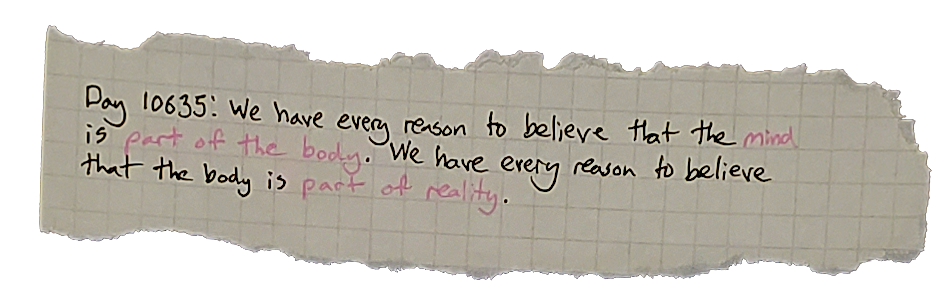 Day 10635: We have every reason to believe that the mind
is part of the body. We have every reason to believe
that the body is part of reality.